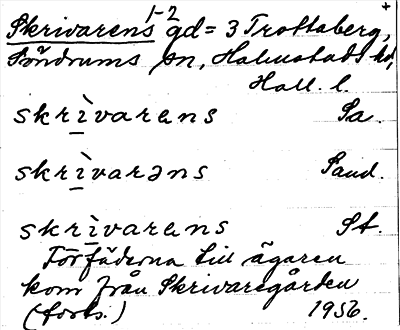 Skrivarens 1-2 gd = 3 Trottaberg,
Söndrums sn, Halmstads hd,
Hall. l.
skrìvarens Sa.
skrìvarəns Sand.
skrìvarens St.
Förfäderna till ägaren
kom från Skrivaregården
(forts.) 1956.